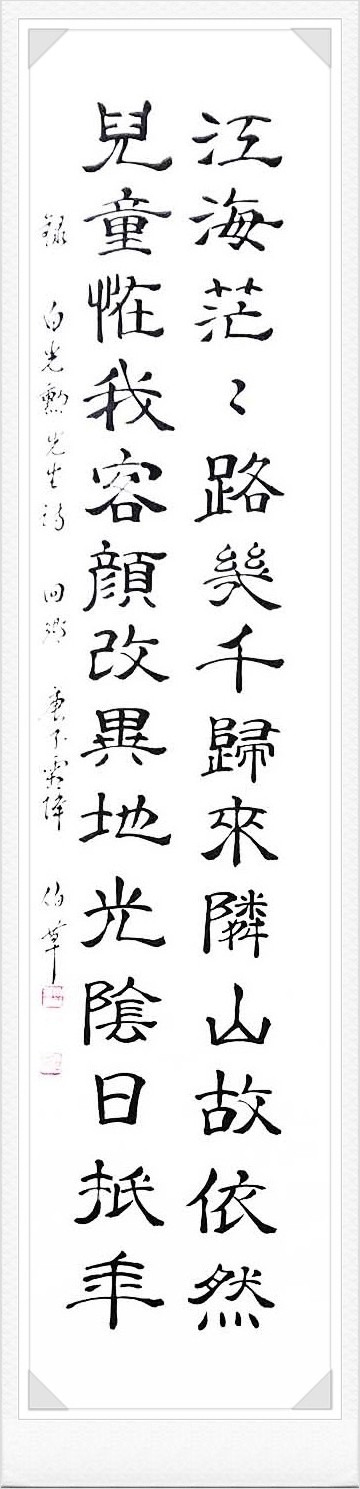 江海茫〻路幾千歸來隣山故依然
兒童恠我容顔改異地光陰日抵年
錄 白光勳先生詩 回鄉 庚子霜降 伯草